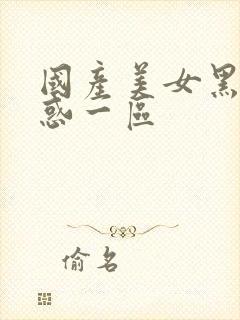 國產美女黑
惑一區
偷名